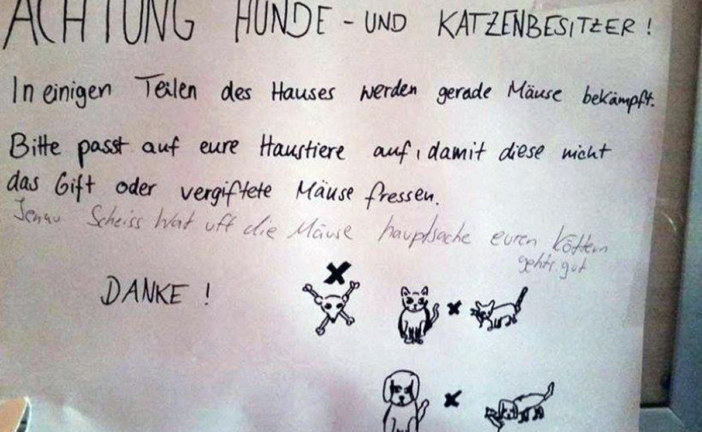 ACHTUNG HUNDE - UND KATZENBESITZER !
In einigen Teilen des Hauses werden gerade Mäuse bekämpft.
Bitte passt auf eure Haustiere auf, damit diese nicht
das Gift oder vergiftete Mäuse fressen.
Jenau Scheiss wat uff die Mäuse hauptsache euren Kötern
gehts gut
DANKE !